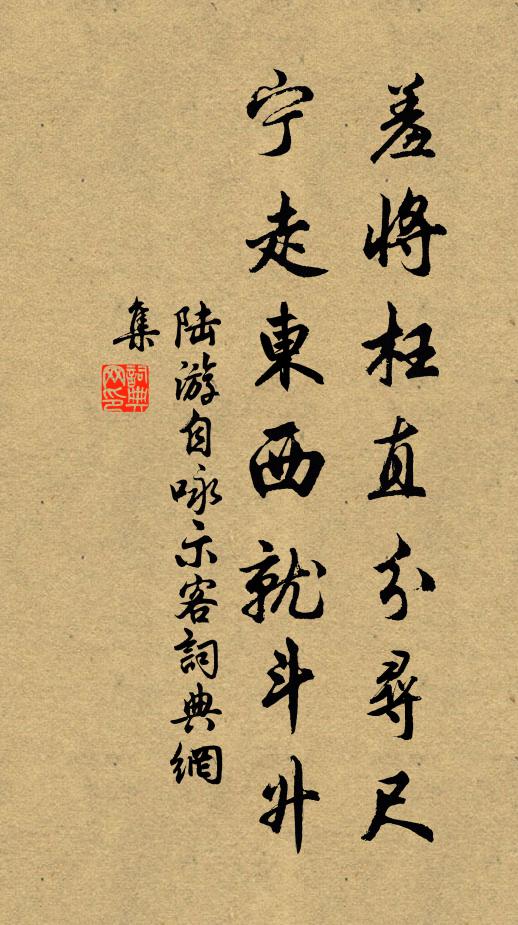 羞將枉直分尋尺
宁走東西就斗升
陆游自咏示客詞典網
集
詞典网印